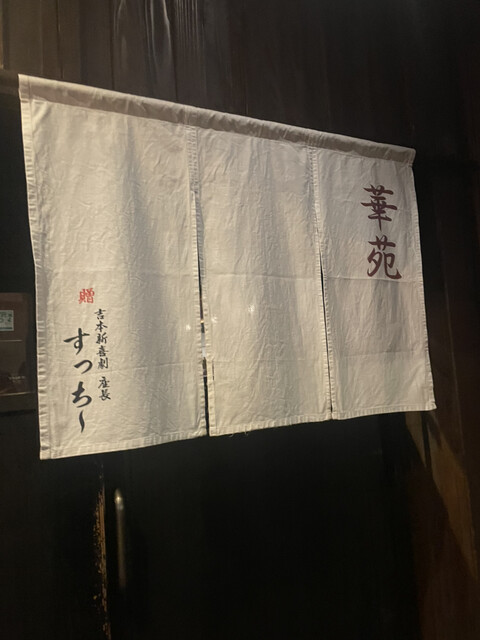 華苑
贈
吉本新喜劇 座長
すっちー